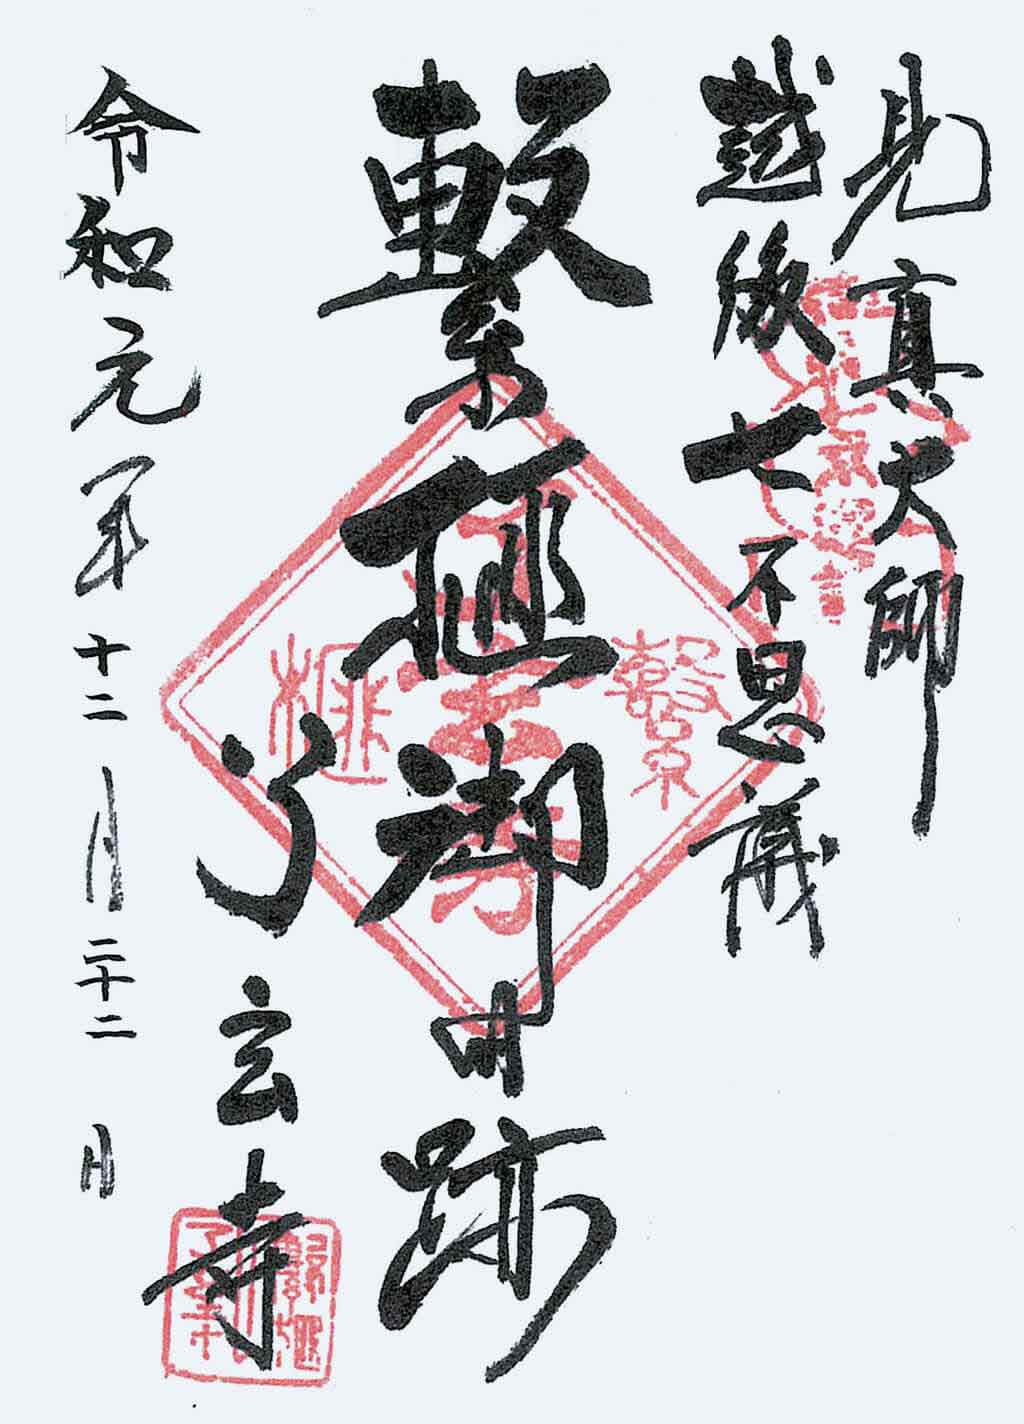 見真大師
越後七不思議
繋榧御旧跡
了玄寺
令和元年十二月二十二日